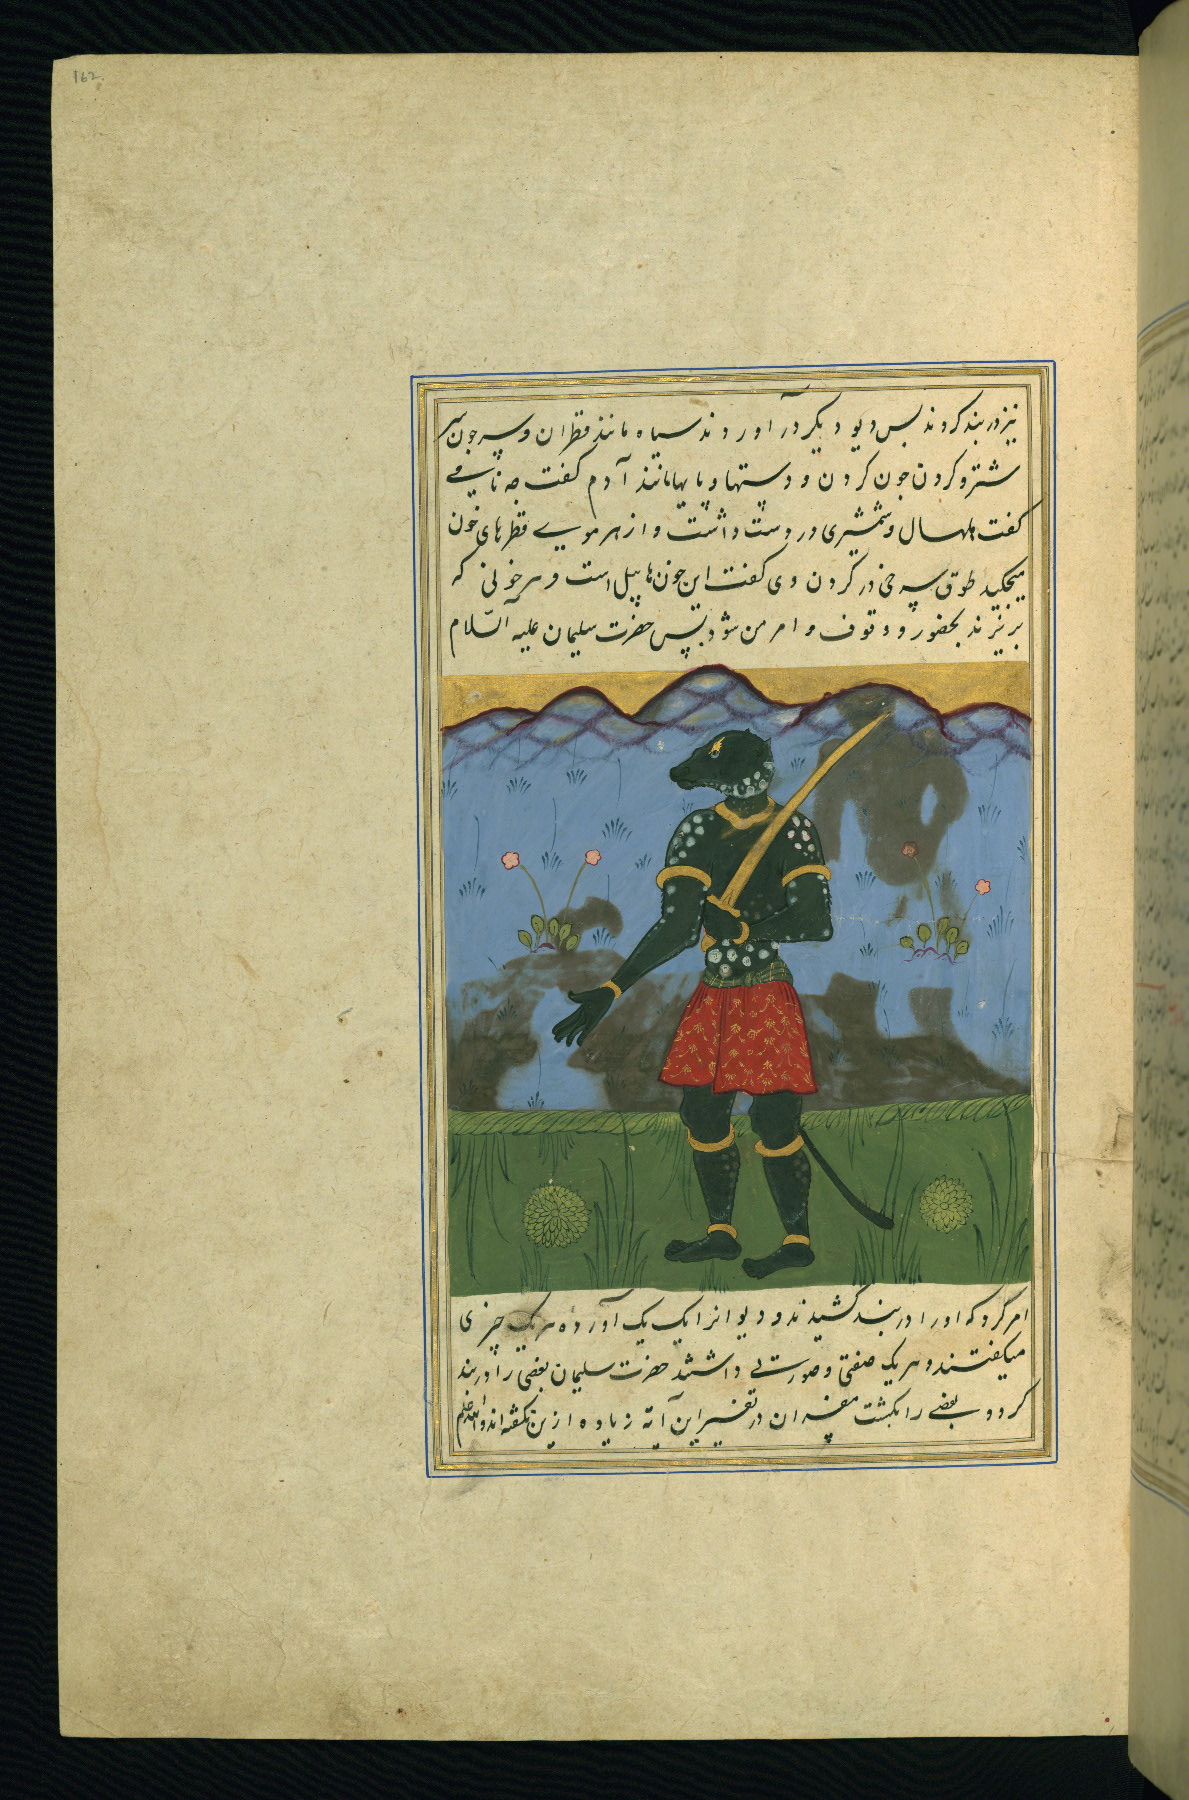 162.
نیز در بند کردند بس دیو دیکر در آوردند سیاه مانند قطران و سر چون سر
شتر و کردن چون کردن و دستها و پایها مانند آدم کفت چه نامی
کفت هلهال و شمشیری در دست داشت و از هر موی قطرهای خون
میچکید طوق سرخی در کردن وی کفت این خون هابیل است و هر خونی که
بریزند بحضور و وقوف و امر من شود پس حضرت سلیمان علیه السّلام
امر کرد که او را در بند کشیدند و دیوانرا یک یک آورده هر یک چیزی
میکفتند و هر یک صفتی و صورتی داشتند حضرت سلیمان بعضی را در بند
کرد و بعضی را بکشت مفسران در تفسیر این آیه زیاده ازین نکفته اند والله اعلم